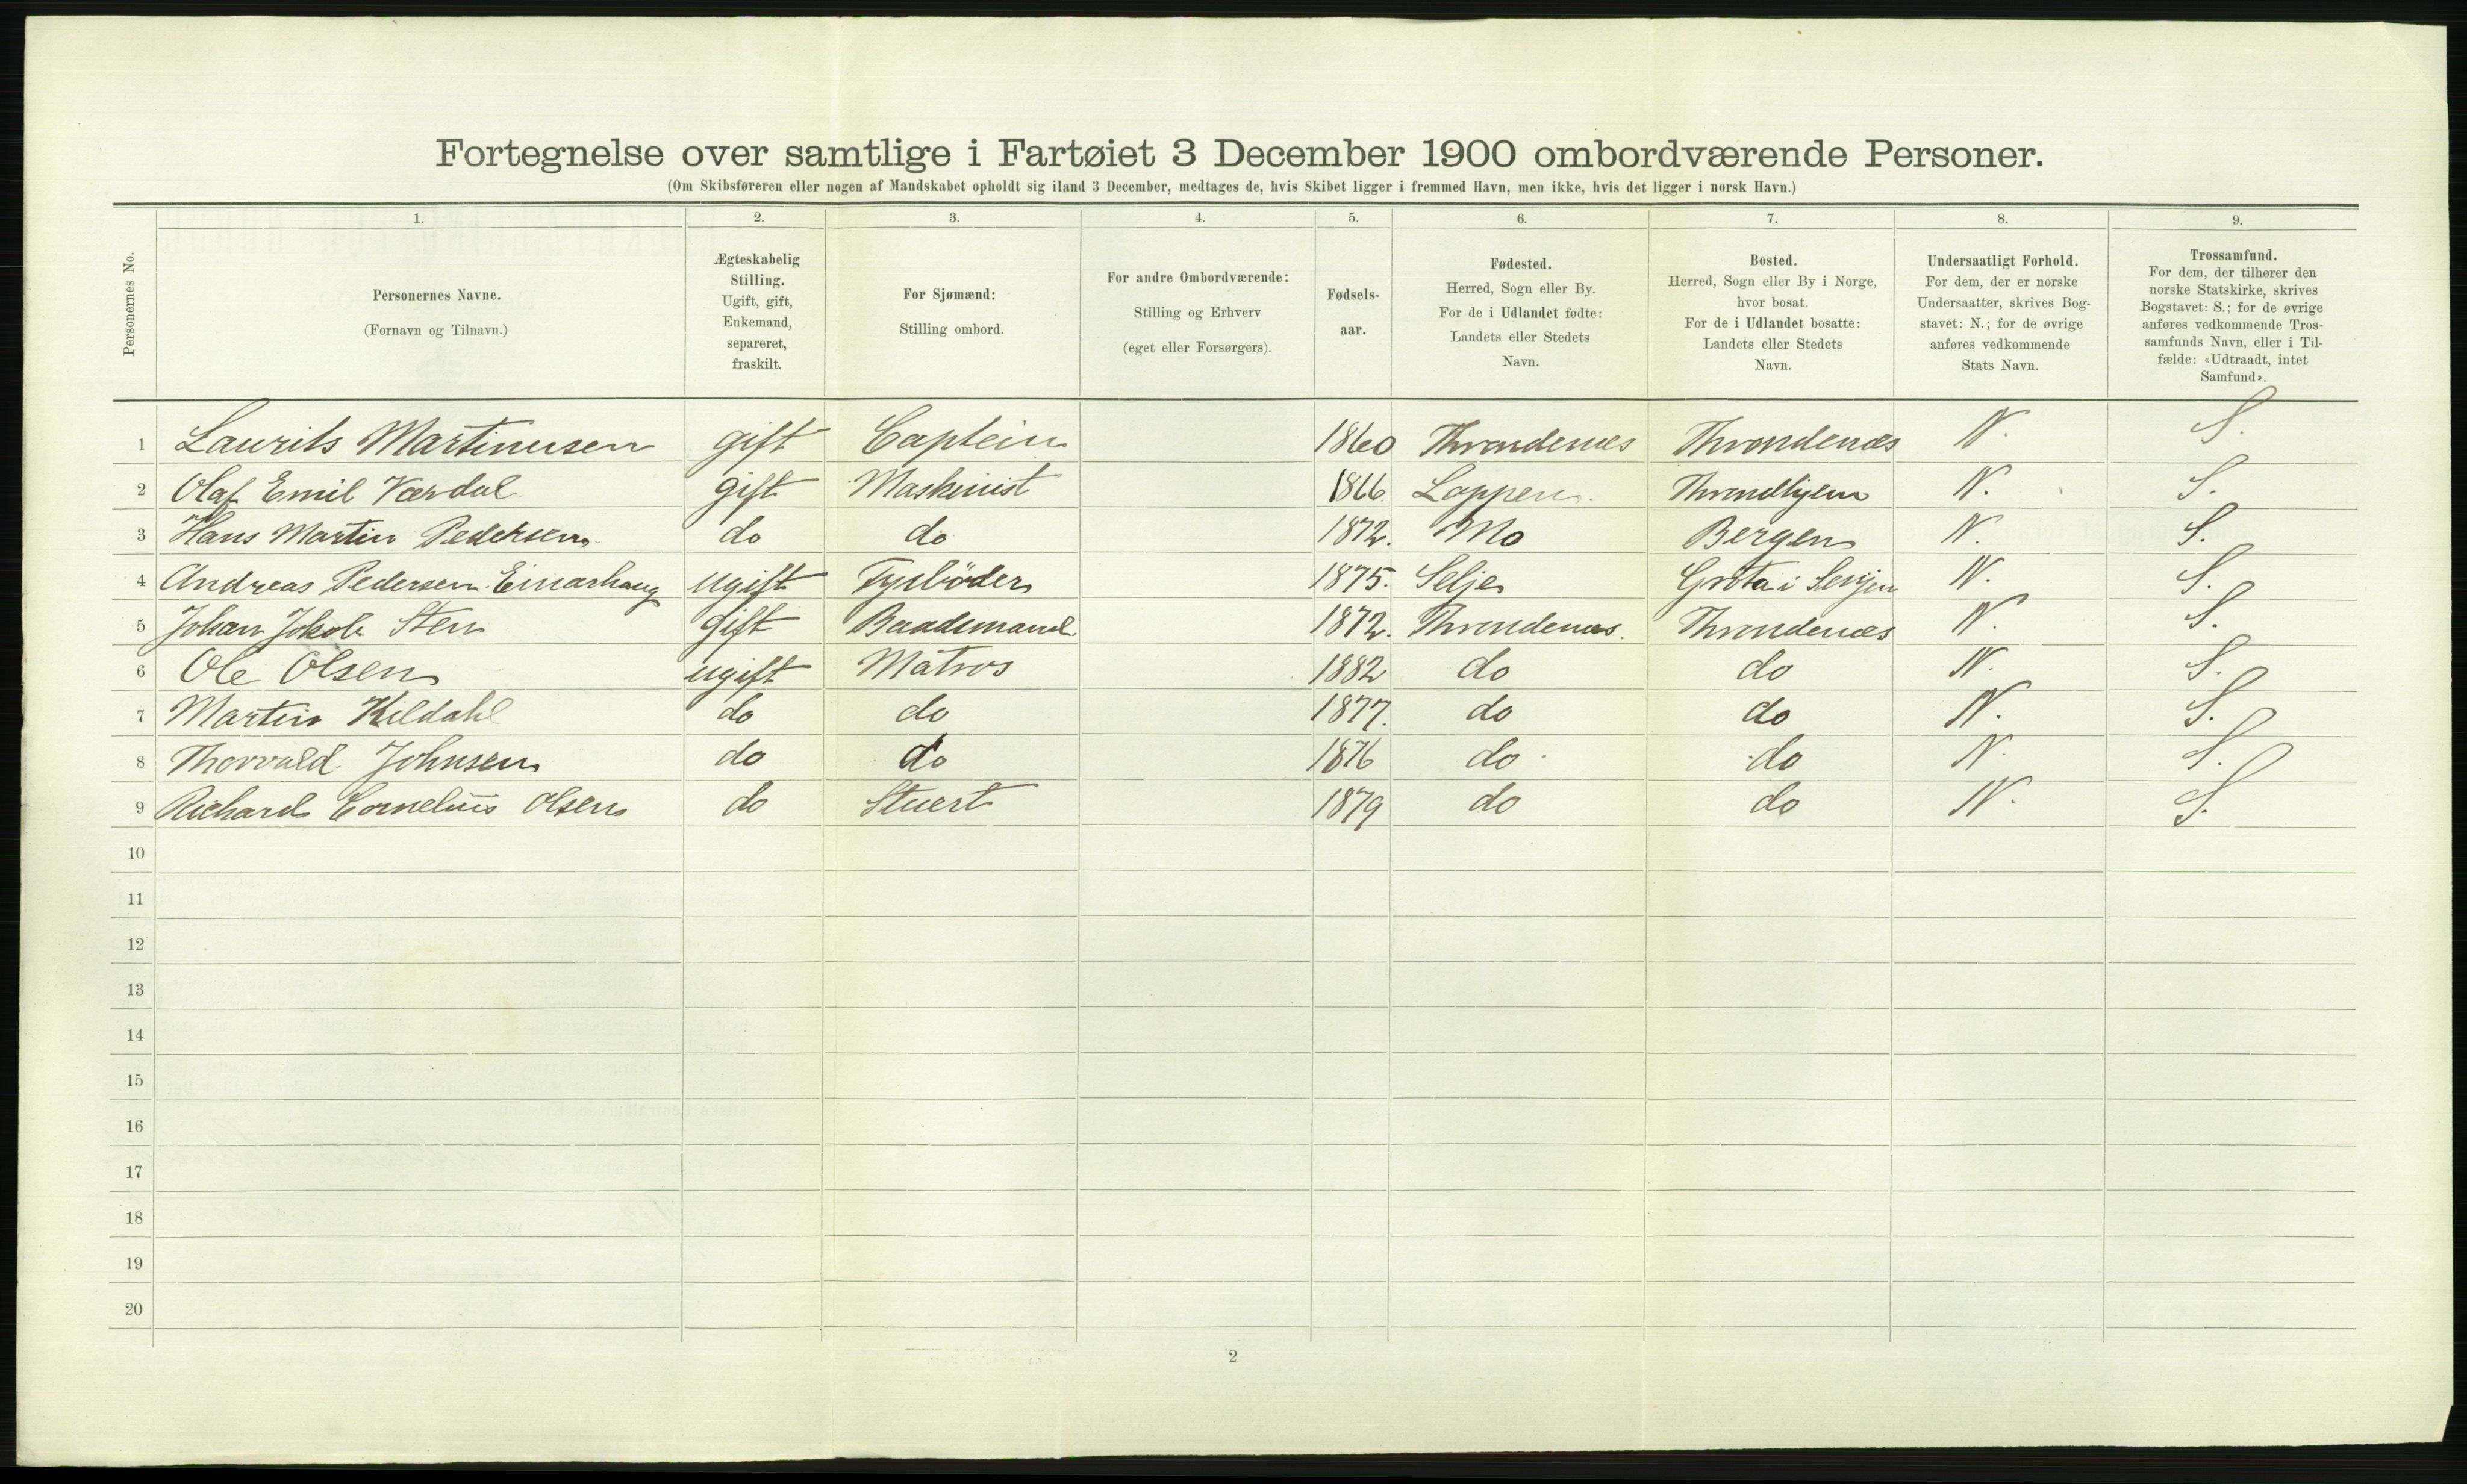 Fortegnelse over samtlige i Fartøiet 3 December 1900 ombordværende Personer.
(Om Skibsføreren eller nogen af Mandskabet opholdt sig iland 3 December, medtages de, hvis Skibet ligger i fremmed Havn, men ikke, hvis det ligger i norsk Havn.)
Personernes No.
1. 2. 3. 4. 5. 6. 7. 8. 9.
Personernes Navne.
(Fornavn og Tilnavn.)
Ægteskabelig
Stilling.
Ugift, gift,
Enkemand,
separeret,
fraskilt.
For Sjømænd:
Stilling ombord.
For andre Ombordværende:
Stilling og Erhverv
(eget eller Forsørgers).
Fødsels-
aar.
Fødested.
Herred, Sogn eller By.
For de i Udlandet fødte:
Landets eller Stedets
Navn.
Bosted.
Herred, Sogn eller By i Norge,
hvor bosat.
For de i Udlandet bosatte:
Landets eller Stedets
Navn.
Undersaatligt Forhold.
For dem, der er norske
Undersaatter, skrives Bog-
stavet: N.; for de øvrige
anføres vedkommende
Stats Navn.
Trossamfund.
For dem, der tilhører den
norske Statskirke, skrives
Bogstavet: S.; for de øvrige
anføres vedkommende Tros-
samfunds Navn, eller i Til-
fælde: «Udtraadt, intet
Samfund».
1 Laurits Martinusen gift Captein 1860 Throndenæs Throndenæs N. S.
2 Olaf Emil Værdal gift Maskinist 1866. Loppen. Throndhjem N. S.
3 Hans Martin Pedersen. do do 1872. Mo Bergen N. S.
4 Andreas Pedersen Einarhaug ugift Fyrbøder 1875. Selje Grøta i Senjen N. S.
5 Johan Jakob Sten gift Baadsmand. 1872. Throndenæs. Throndenæs N. S.
6 Ole Olsen ugift Matros 1882 do do N. S.
7 Martin Kildahl do do 1877. do do N. S.
8 Thorvald Johnsen do do 1876 do do N. S.
9 Richard Cornelius Olsen do Stuert 1879 do do N. S.
10
11
12
13
14
15
16
17
18
19
20
2